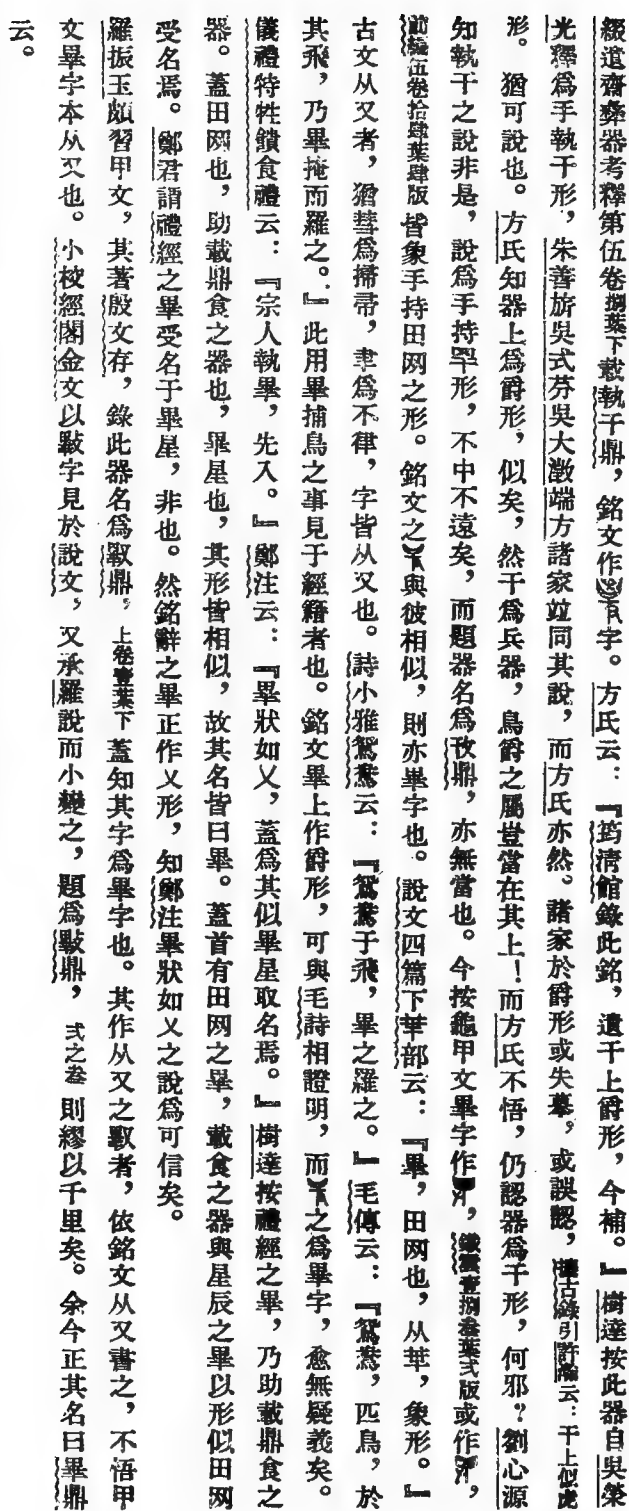 綴遺齋彝器考釋第伍卷捌葉下載執干鼎，銘文作字。方氏云：『筠清館錄此銘，遺干上爵形，今補。』樹達按此器自吳榮
光釋爲手執干形，朱善旂吳式芬吳大澂端方諸家竝同其說，而方氏亦然。諸家於爵形或失摹，或誤認，攈古錄引許瀚云：干上似
形。猶可說也。方氏知器上爲爵形，似矣，然干爲兵器，鳥爵之屬豈當在其上！而方氏不悟，仍認器爲干形，何邪？劉心源
知執干之說非是，說爲手持𠦒形，不中不遠矣，而題器名爲鼎，亦無當也。今按龜甲文畢字作，鐵雲壹捌叁葉弍版或作，
前編伍卷拾肆葉肆版皆象手持田网之形。銘文之與彼相似，則亦畢字也。說文四篇下𠦒部云：『畢，田网也，从𠦒，象形。』
古文从又者，猶彗爲掃帚，聿爲不律，字皆从又也。詩小雅鴛鴦云：『鴛鴦于飛，畢之羅之。』毛傳云：『鴛鴦，匹鳥，於
其飛，乃畢掩而羅之。』此用畢捕鳥之事見于經籍者也。銘文畢上作爵形，可與毛詩相證明，而之爲畢字，愈無疑義矣。
儀禮特牲饋食禮云：『宗人執畢，先入。』鄭注云：『畢狀如乂，蓋爲其似畢星取名焉。』樹達按禮經之畢，乃助載鼎食之
器。蓋田网也，助載鼎食之器也，畢星也，其形皆相似，故其名皆曰畢。蓋首有田网之畢，載食之器與星辰之畢以形似田网
受名焉。鄭君謂禮經之畢受名于畢星，非也。然銘辭之畢正作乂形，知鄭注畢狀如乂之說爲可信矣。
羅振玉頗習甲文，其著殷文存，錄此器名爲𢿢鼎。上卷壹葉下蓋知其字爲畢字也。其作从又之者，依銘文从又書之，不悟甲
文畢字本从又也。小校經閣金文以𢿢字見於說文，又承羅說而小變之，題爲𢿢鼎，弍之卷則繆以千里矣。余今正其名曰畢鼎
云。